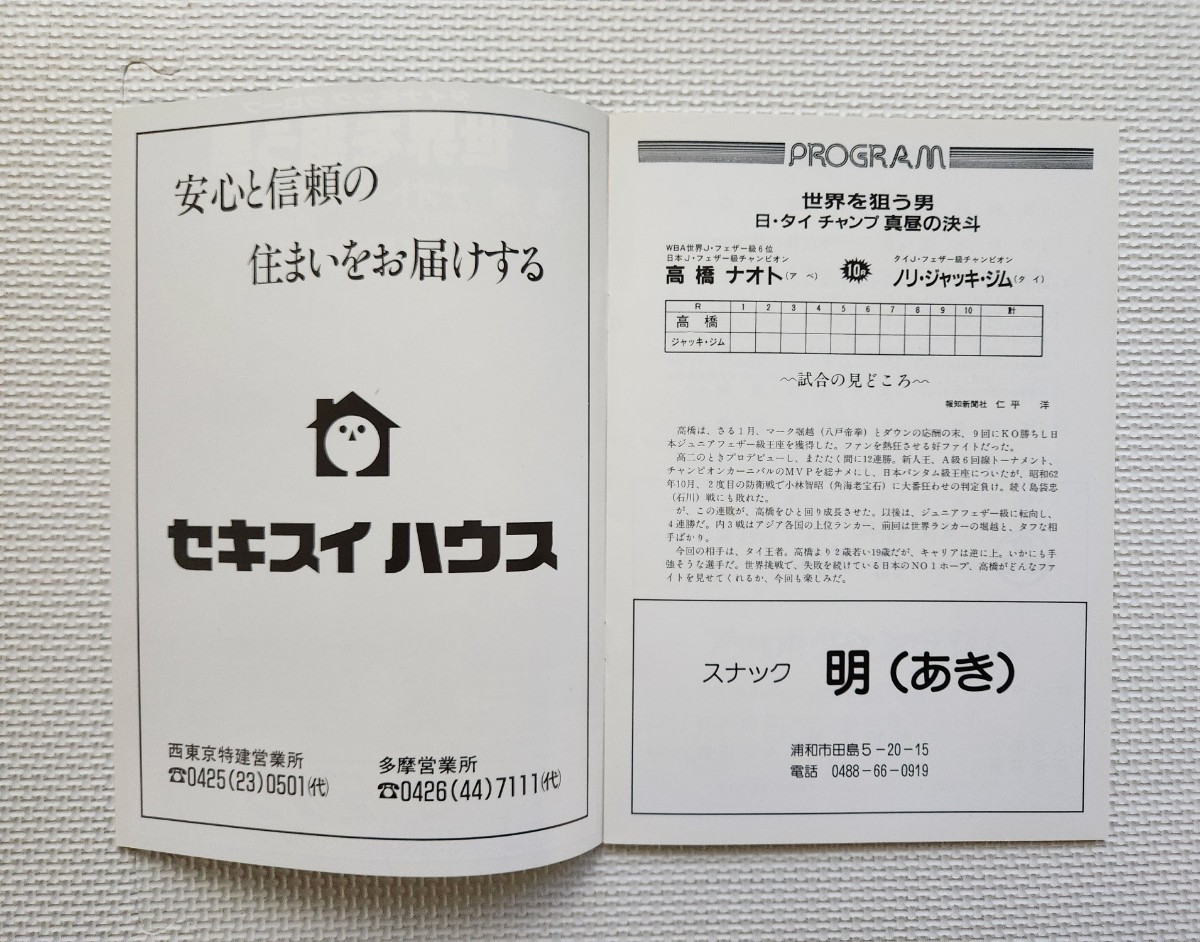 安心と信頼の
住まいをお届けする
セキスイ ハウス
西東京特建営業所
☎0425(23)0501(代)
多摩営業所
☎0426(44)7111(代)
PROGRAM
世界を狙う男
日・タイ チャンプ 真昼の決斗
WBA世界J・フェザー級6位
日本J・フェザー級チャンピオン
高橋 ナオト(アベ)
10R
タイJ・フェザー級チャンピオン
ノリ・ジャッキ・ジム(タイ)
R 1 2 3 4 5 6 7 8 9 10 計
高橋
ジャッキ・ジム
〜試合の見どころ〜
報知新聞社 仁平 洋
高橋は、さる1月、マーク堀越(八戸帝拳)とダウンの応酬の末、9回にKO勝ちし日
本ジュニアフェザー級王座を獲得した。ファンを熱狂させる好ファイトだった。
高二のときプロデビューし、またたく間に12連勝。新人王、A級6回線トーナメント、
チャンピオンカーニバルのMVPを総ナメにし、日本バンタム級王座についたが、昭和62
年10月、2度目の防衛戦で小林智昭(角海老宝石)に大番狂わせの判定負け。続く島袋忠
(石川)戦にも敗れた。
が、この連敗が、高橋をひと回り成長させた。以後は、ジュニアフェザー級に転向し、
4連勝だ。内3戦はアジア各国の上位ランカー、前回は世界ランカーの堀越と、タフな相
手ばかり。
今回の相手は、タイ王者。高橋より2歳若い19歳だが、キャリアは逆に上。いかにも手
強そうな選手だ。世界挑戦で、失敗を続けている日本のNO1ホープ、高橋がどんなファ
イトを見せてくれるか、今回も楽しみだ。
スナック 明(あき)
浦和市田島5-20-15
電話 0488-66-0919